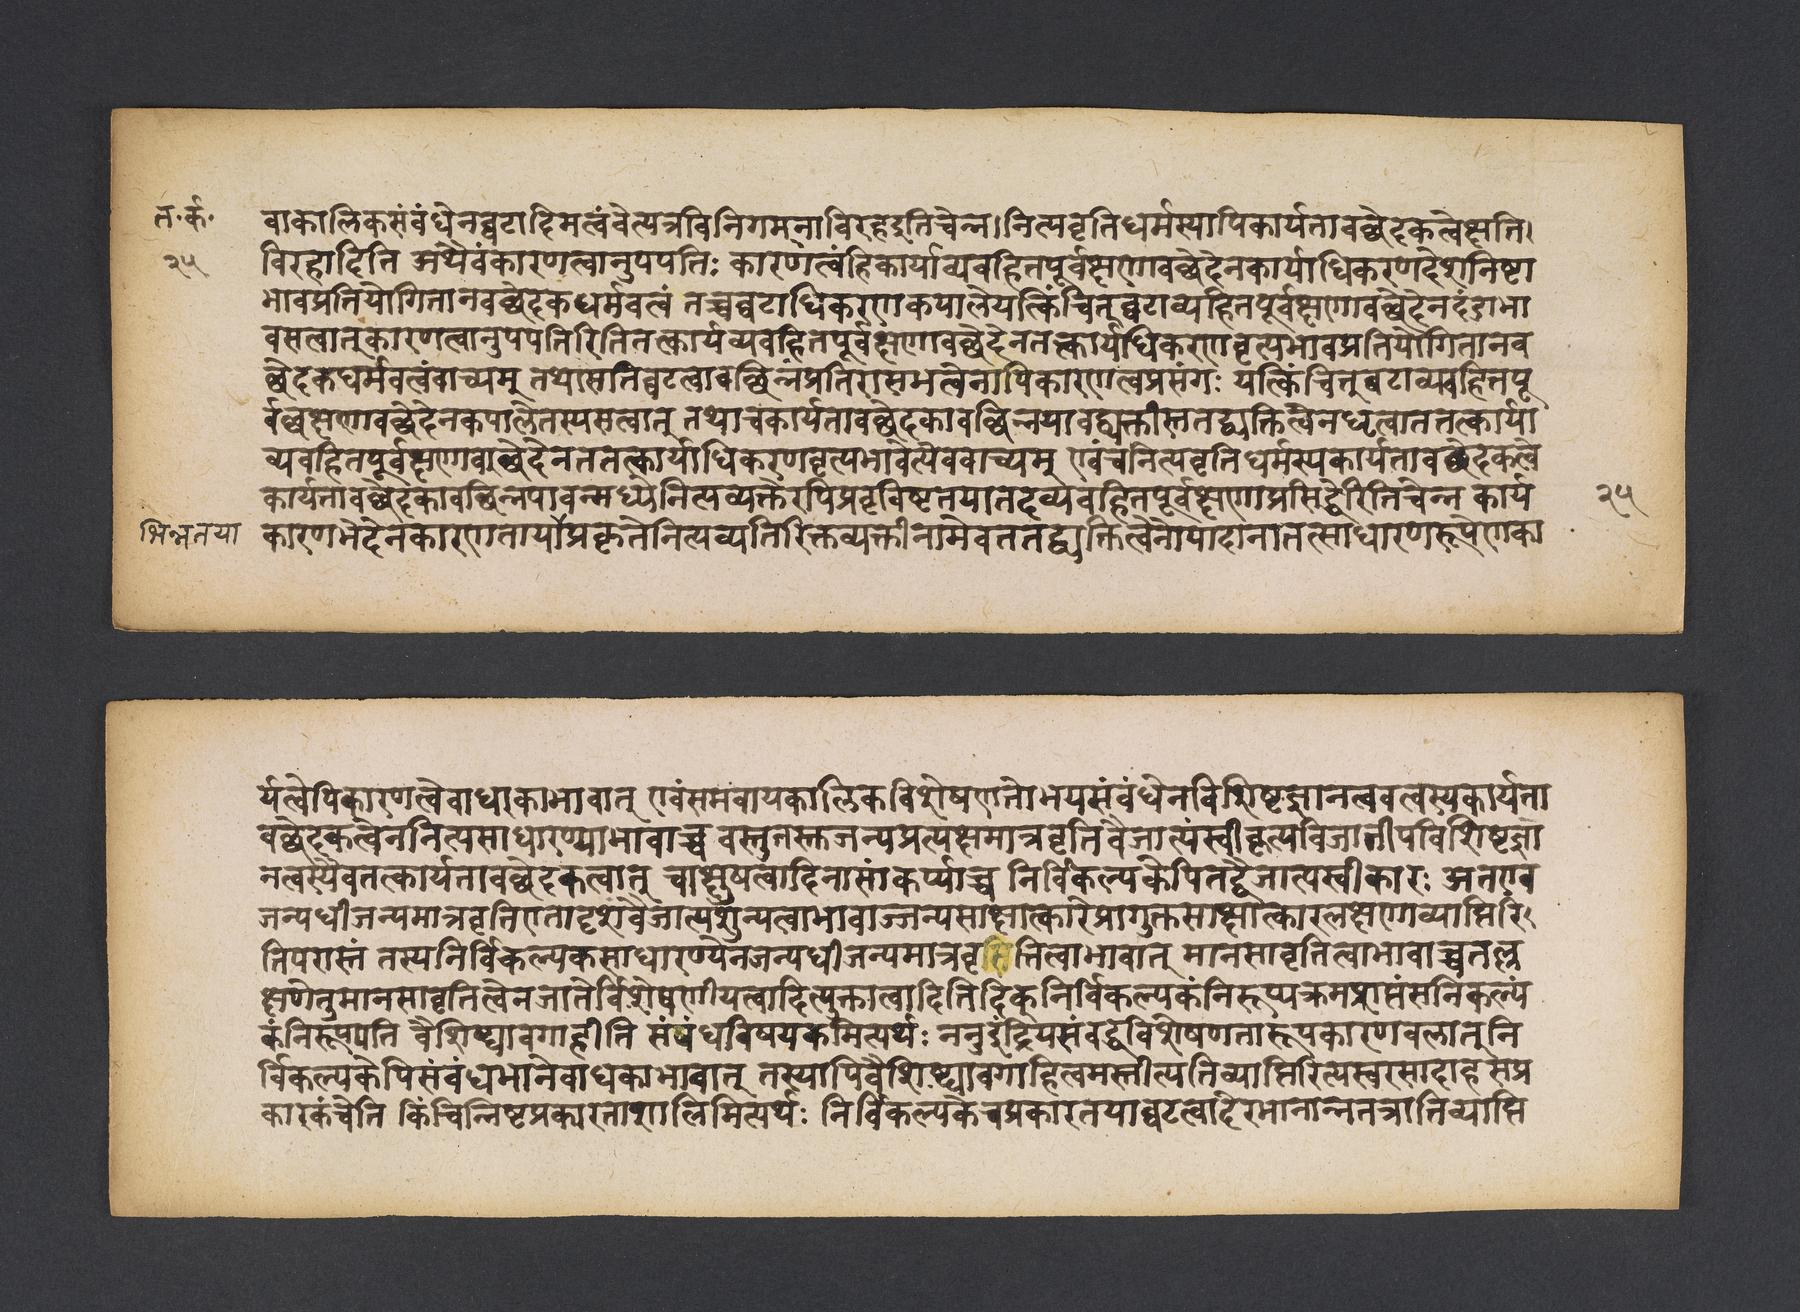 त॰र्क॰
२५
वाकालिकसंबंधेनघटादिमत्वंवेत्यत्रविनिगमनाविरहइतिचेन्न।नित्यवृतिधर्मस्यापिकार्यतावछेदकत्वेक्षति।
विरहादिति अथैवंकारणत्वानुपपतिः कारणत्वंहिकार्याव्यवहितपूर्वक्षणावछेदेनकार्याधिकरणदेशनिष्टा
भावप्रतियोगितानवछेदकधर्मवत्वं तच्चघटाधिकरणकपालेयत्किंचित्घटाव्यहितपूर्वक्षणावछेदेनदंडाभा
वसत्वात्कारणत्वानुपपतिरितितत्कार्यव्यवहितपूर्वक्षणावछेदेनतत्कार्याधिकरणवृत्यभावप्रतियोगितानव
छेदकधर्मवत्वंवाच्यम् तथासतिघटत्वावछिन्नंप्रतिरासभत्वेनापिकारणत्वप्रसंगः यत्किंचित्घटाव्यवहितपू
र्वक्षणावछेदेनकपालेतस्यसत्वात् तथाचकार्यतावछेदकावछिन्नयावद्व्यक्तीस्ततद्व्यक्तित्वेनधृत्वाततत्कार्या
व्यवहितपूर्वक्षणावछेदेनततत्कार्याधिकरणवृत्यभावेत्येववाच्यम् एवंचनित्यवृतिधर्मस्यकार्यतावछेदकत्वे
कार्यतावछेदकावछिन्नयावन्मध्येनित्यव्यक्तेरपिप्रवृविष्टतयातदव्यवहितपूर्वक्षणाप्रसिद्धेरितिचेन्न कार्य
२५
भिन्नतया
कारणभेदेनकारणतार्याप्रकृतेनित्यव्यतिरिक्तव्यक्तीनामेवततद्व्यक्तित्वेनोपादानातत्साधारणरूपेणका
र्यत्वेपिकारणत्वेवाधाकाभावात् एवंसमवायकालिकविशेषणतोभयसंबंधेनविशिष्टज्ञानत्ववत्वस्यकार्यता
वछेदकत्वेननित्यसाधारण्याभावाच्च वस्तुतस्तजन्यप्रत्यक्षमात्रवृतिवैजात्यंस्वीवृत्यविजातीपविशिष्टज्ञा
नत्वस्यैवतत्कार्यतावछेदकत्वात् चाक्षुषत्वादिनासांकर्प्याच्च निर्विकल्पकेपितद्वैजात्यस्वीकारः अतएव
जन्यधीजन्यमात्रवृतिएतादृशवैजात्यशून्यत्वाभावाज्जन्यसाक्षात्कारेप्रागुक्तसाक्षात्कारलक्षणाव्याप्तिरि
तिपरास्तं तस्यनिर्विकल्पकसाधारण्येनजन्यधीजन्यमात्रवृतित्वाभावात् मानसावृतित्वाभावाच्चतल्ल
क्षणेतुमानसावृतित्वेनजातेर्विशेषणीयत्वादित्युक्तात्वादितिदिक् निर्विकल्पकंनिरूप्यक्रमप्राप्तंसनिकल्पं
कंनिरूपयति वैशिष्ट्यावगाहीति संबंधविषयकमित्यर्थः ननुइंद्रियसंबद्धविशेषणतारूपकारणवलात्नि
र्विकल्पकेपिसंबंधभानेवाधकाभावात् तस्यापिवैशिष्ट्यावगाहित्वमस्तीत्यतिव्याप्तिरित्यस्वरसादाह सप्र
कारकंचेति किंचिन्निष्टप्रकारताशालिमित्यर्थः निर्विकल्पकेचप्रकारतयाघटत्वादेरभानान्नतत्रातिव्याप्ति